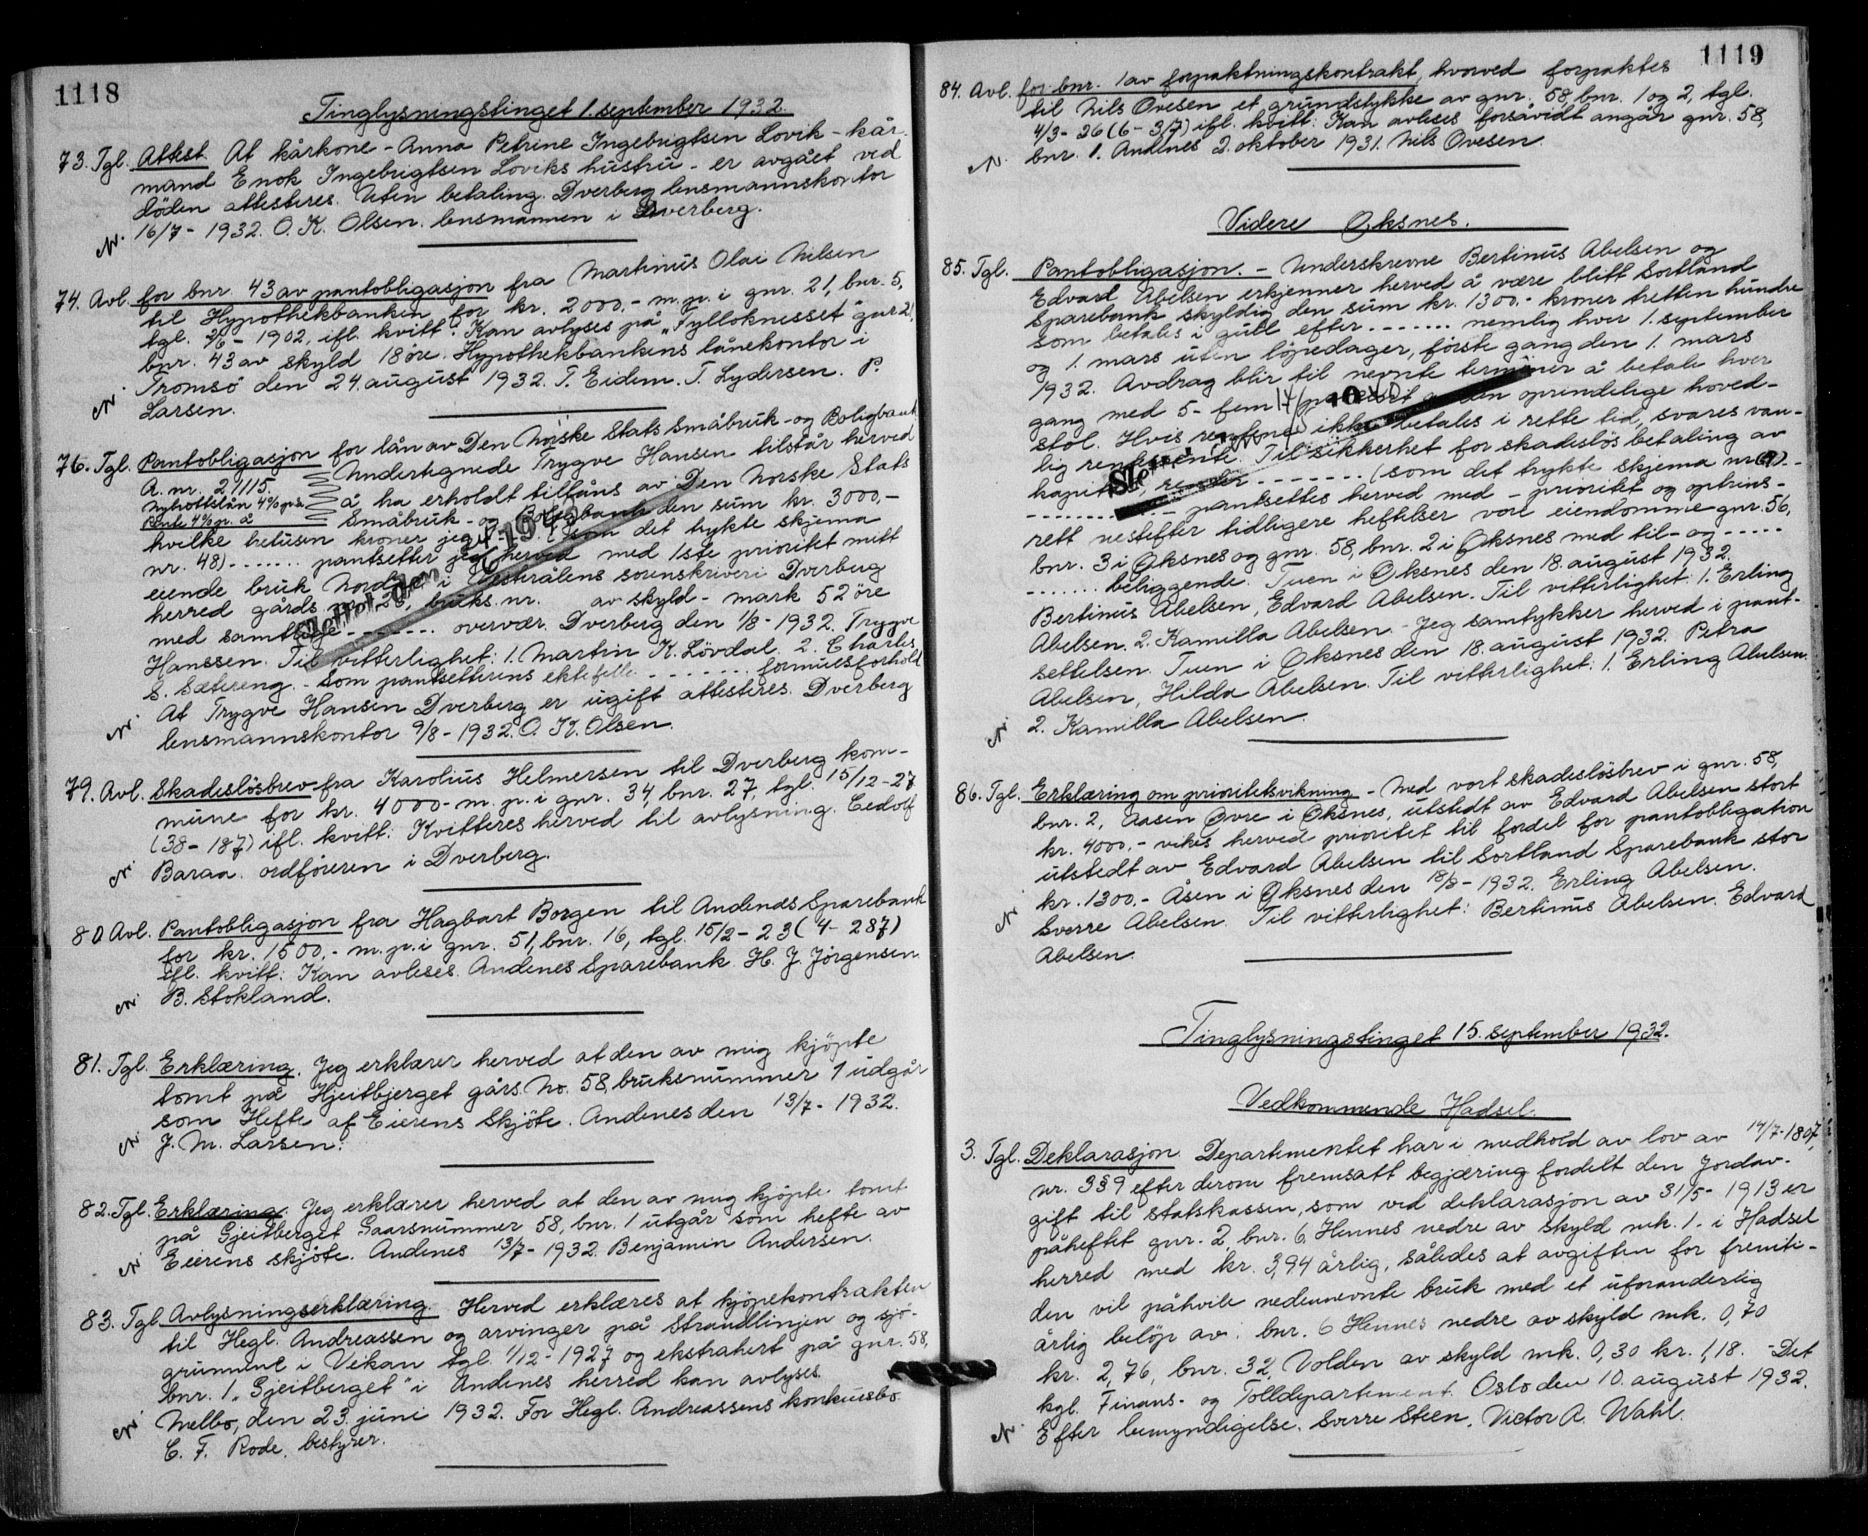 1118
Tinglysningstinget 1. september 1932.
73. Tgl. Attest. At kårkone - Anna Petrine Ingebrigtsen Lovik - kår-
mand Enok Ingebrigtsen Loviks hustru - er avgået ved
døden attesteres. Uten betaling. Dverberg lensmannskontor
16/7 - 1932. O. K. Olsen. lensmannen i Dverberg.
74. Avl. for bnr. 43 av pantobligasjon fra Martinus Olai Nilsen
til Hypothekbanken for kr. 2000.- m. p. i gnr. 21, bnr. 5,
tgl. 2/6 - 1902, ifl. kvitt: Kan avlyses på "Fylloknesset gnr 21,
bnr. 43 av skyld 18 øre. Hypothekbankens lånekontor i
Tromsö den 24. august 1932. T. Eidem. T. Lydersen. P.
Larsen.
76. Tgl. Pantobligasjon for lån av Den Norske Stats Småbruk- og Boligbank
A. nr. 27115. Undertegnede Trygve Hansen tilstår herved
Nybrottslån 4% p.a. å ha erholdt tillåns av Den Norske Stats
Rente 4% p. a. Småbruk- og Boligbank den sum kr. 3000,-
hvilke tretusen kroner jeg (som det trykte skjema
nr. 48) ....... pantsetter jeg herved med 1ste prioritet mitt
eiende bruk Nord i Vesterålens sorenskriveri Dverberg
herred gårds 28, bruks. nr. av skyld - mark 52 öre
med samtlige ....... overvær. Dverberg den 1/8 - 1932. Trygve
Hanssen. Til vitterlighet: 1. Martin K. Lövdal. 2. Charles
S. Sætereng. - Som pantsetterens ektefelle ....... formuesforhold
At Trygve Hansen Dverberg er ugift attesteres. Dverberg
lensmannskontor 9/8 - 1932. O. K. Olsen.
79. Avl. Skadeslösbrev fra Karolius Helmersen til Dverberg kom-
mune for kr. 4000- m. p. i gnr. 34, bnr. 27, tgl. 15/12 - 27
(38 - 187) ifl. kvitt: Kvitteres herved til avlysning. Eedolf
Baraa. ordföreren i Dverberg.
80 Avl. Pantobligasjon fra Hagbart Borgen til Andenes Sparebank
for kr. 1500,- m. p. i gnr. 51, bnr. 16, tgl. 15/2 - 23 (4 - 287)
ifl. kvitt: Kan avleses. Andenes Sparebank. H. J. Jörgensen
B. Stokland.
81. Tgl. Erklæring. Jeg erklærer herved at den av mig kjöpte
tomt på Hjeitbjerget gårs. No. 58, bruksnummer 1 udgår
som Hefte af Eierens Skjöte. Andenes den 13/7 - 1932.
J. M. Larsen.
82. Tgl. Erklæring. Jeg erklærer herved at den av mig kjöpte tomt
på Gjeitberget Gaarsnummer 58, bnr. 1 utgår som hefte av
Eierens skjöte. Andenes 13/7 - 1932. Benjamin Andersen.
83. Tgl Avlysningserklæring. Herved erklæres at kjöpekontrakten
til Hegl. Andreassen og arvinger på Strandlinjen og sjö-
grunnene i Vikan tgl. 1/12 - 1927 og ekstrahert på gnr. 58,
bnr. 1, "Gjeitberget" i Andenes herred kan avlyses.
Melbo, den 23. juni 1932. For Hegl. Andreassens konkursbo.
C. F. Rode. bestyrer.
1119
84. Avl. for bnr. 1 av forpaktningskontrakt, hvorved forpaktes
til Nils Ovesen et grundstykke av gnr. 58, bnr. 1 og 2, tgl.
4/3 - 26 (6 - 37) ifl. kvitt: Kan avleses forsåvidt angår gnr. 58,
bnr. 1. Andenes 2. oktober 1931. Nils Ovesen.
Videre Øksnes.
85. Tgl. Pantobligasjon. - Underskrevne Bertinus Abelsen og
Edvard Abelsen erkjenner herved å være blitt Sortland
Sparebank skyldig den sum kr. 1300.- kroner tretten hundre
som betales i gull efter ....... nemlig hver 1. september
og 1. mars uten löpedager, förste gang den 1. mars
1932. Avdrag blir til nevnte terminer å betale hver
gang med 5- fem av den oprindelige hoved-
stol. Hvis rentene ikke betales i rette tid, svares van-
lig rentesrente. Til sikkerhet for skadeslös betaling av
kapital, renter ....... (som det trykte skjema nr.
....... pantsettes herved med - prioritet og oprins-
rett nestefter tidligere heftelser vore eiendomme gnr. 56,
bnr. 3 i Øksnes og gnr. 58, bnr. 2 i Øksnes med til- og .....
....... beliggende. Tuen i Øksnes den 18. august 1932.
Bertinus Abelsen, Edvard Abelsen. Til vitterlighet: 1. Erling
Abelsen. 2. Kamilla Abelsen. - Jeg samtykker herved i pant-
settelsen. Tuen i Øksnes den 18. august 1932. Petra
Abelsen, Hilda Abelsen. Til vitterlighet: 1. Erling Abelsen.
2. Kamilla Abelsen.
86. Tgl. Erklæring om prioritetsvikning - Med vort skadeslösbrev i gnr. 58,
bnr. 2, Aasen Øvre i Øksnes, utstedt av Edvard Abelsen stort
kr. 4000.- vikes herved prioritet til fordel for pantobligation
utstedt av Edvard Abelsen til Sortland Sparebank stor
kr. 1300.- Åsen i Øksnes den 18/8 - 1932. Erling Abelsen.
Sverre Abelsen. Til vitterlighet: Bertinus Abelsen. Edvard
Abelsen.
Tinglysningstinget 15. september 1932.
Vedkommende Hadsel.
3. Tgl. Deklarasjon. Departementet har i medhold av lov av 14/7-1807,
nr. 3 § 9 efter derom fremsatt begjæring fordelt den Jordav-
gift til statskassen, som ved deklarasjon av 31/5 - 1913 er
påheftet gnr. 2, bnr. 6, Hennes nedre av skyld mk. 1.- i Hadsel
herred med kr. 3,94 årlig, således at avgiften for fremti-
den vil påhvile nedennevnte bruk med et uforanderlig
årlig belöp av: bnr. 6 Hennes nedre av skyld mk. 0,70
kr. 2,76, bnr. 32, Volden av skyld mk. 0,30 kr. 1,18. - Det
kgl. Finans- og Tolldepartement. Oslo den 10. august 1932.
Efter bemyndigelse. Sverre Steen. Victor A. Wahl.